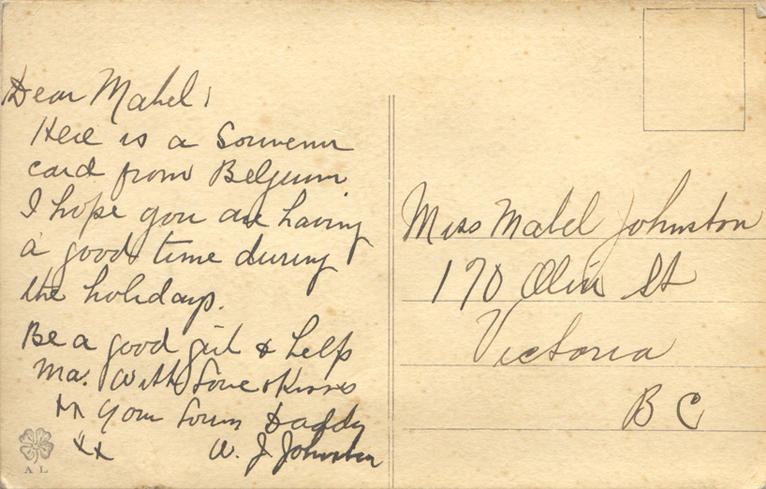 Dear Mabel;
Here is a Souvenir
card from Belgium
I hope you are having
a good time during
the holidays.
Be a good girl & help
Ma. With Love & Kisses
Your Loving Daddy
xx W. J. Johnston
A L
Miss Mabel Johnston
170 Olive St
Victoria
B C